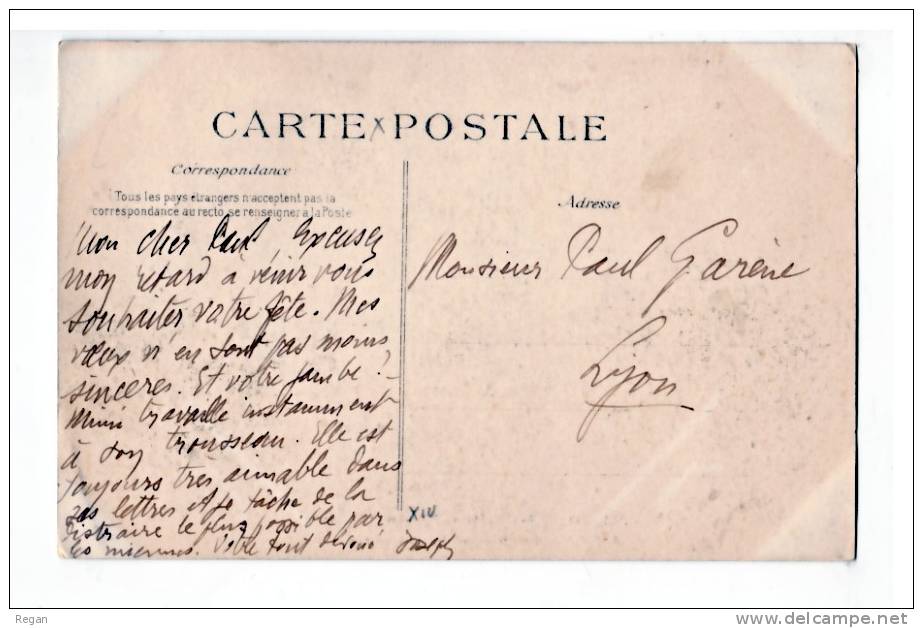 CARTE POSTALE
Correspondance
Tous les pays étrangers n'acceptent pas la
correspondance au recto, se renseigner à la Poste
Adresse
Mon cher Paul, Excusez
mon retard à venir vous
souhaiter votre fête. Mes
vœux n'en sont pas moins
sincères. Et votre jambe?
Mimi travaille instamment
à son trousseau. Elle est
toujours très aimable dans
ses lettres et je tâche de la
distraire le plus possible par
les miennes. Votre tout dévoué Joseph
Monsieur Paul Garène
Lyon
XIV
Regan
delcampe.net